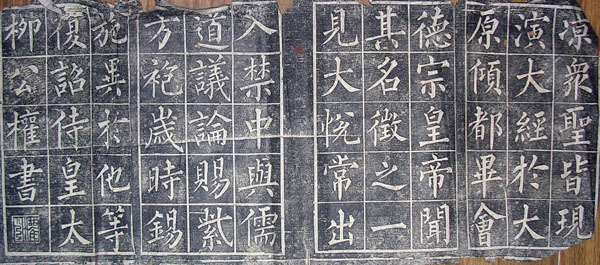 凉衆聖皆現
演大經於大
原傾都畢會
德宗皇帝聞
其名徵之一
見大悅常出
入禁中與儒
道議論賜紫
方袍歲時錫
施異於他等
復詔侍皇太
柳公權書